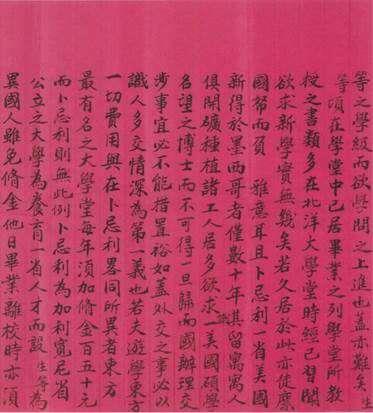 等之學級而欲學問之上進也蓋亦難矣生
等項在學堂中已居畢業之列學堂所教
授之書類多在北洋大學堂時經已習聞
欲求新學實無幾矣若久居於此亦徒糜
國帑而負 雅意耳且卜忌利一省美國
新得於墨西哥者僅數十年其留寓人
俱開礦種植諸工人居多欲求一美國碩學
名望之博士而不可得一旦歸而國辦理交
涉事宜必不能措置裕如蓋外交之事必以
識人多交情深為第一義也若夫遊學東方
一切費用與在卜忌利畧同所異者東方
最有名之大學堂每年須加脩金百五十元
而卜忌利則無此例卜忌利為加利寬尼省
公立之大學為養育一省人才而設生等為
異國人雖免脩金他日畢業離校時亦須